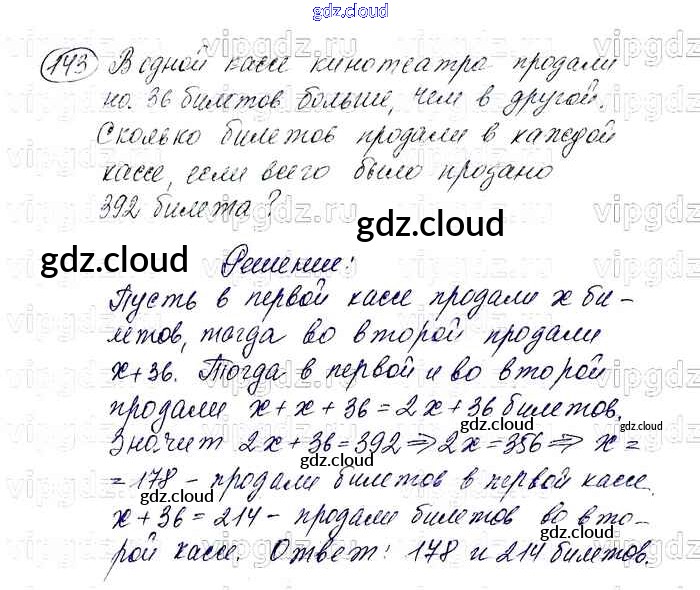 gdz.cloud
143 В одной кассе кинотеатра продали
на 36 билетов больше, чем в другой.
Сколько билетов продали в каждой
кассе, если всего было продано
392 билета?
gdz.cloud
gdz.cloud
Решение:
Пусть в первой кассе продали x би-
летов, тогда во второй продали
x+36. Тогда в первой и во второй
продали x+x+36=2x+36 билетов.
gdz.cloud
Значит 2x+36=392⇒2x=356⇒x=
gdz.cloud
=178 - продали билетов в первой кассе.
gdz.cloud
gdz.cloud
x+36=214 - продали билетов во вто-
рой кассе. Ответ: 178 и 214 билетов.
gdz.cloud